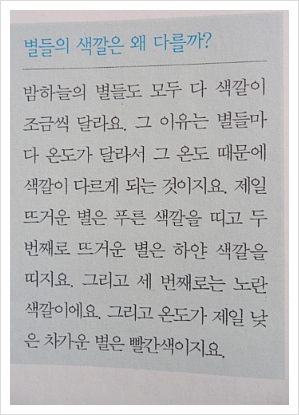 별들의 색깔은 왜 다를까?
밤하늘의 별들도 모두 다 색깔이
조금씩 달라요. 그 이유는 별들마
다 온도가 달라서 그 온도 때문에
색깔이 다르게 되는 것이지요. 제일
뜨거운 별은 푸른 색깔을 띠고 두
번째로 뜨거운 별은 하얀 색깔을
띠지요. 그리고 세 번째로는 노란
색깔이에요. 그리고 온도가 제일 낮
은 차가운 별은 빨간색이지요.